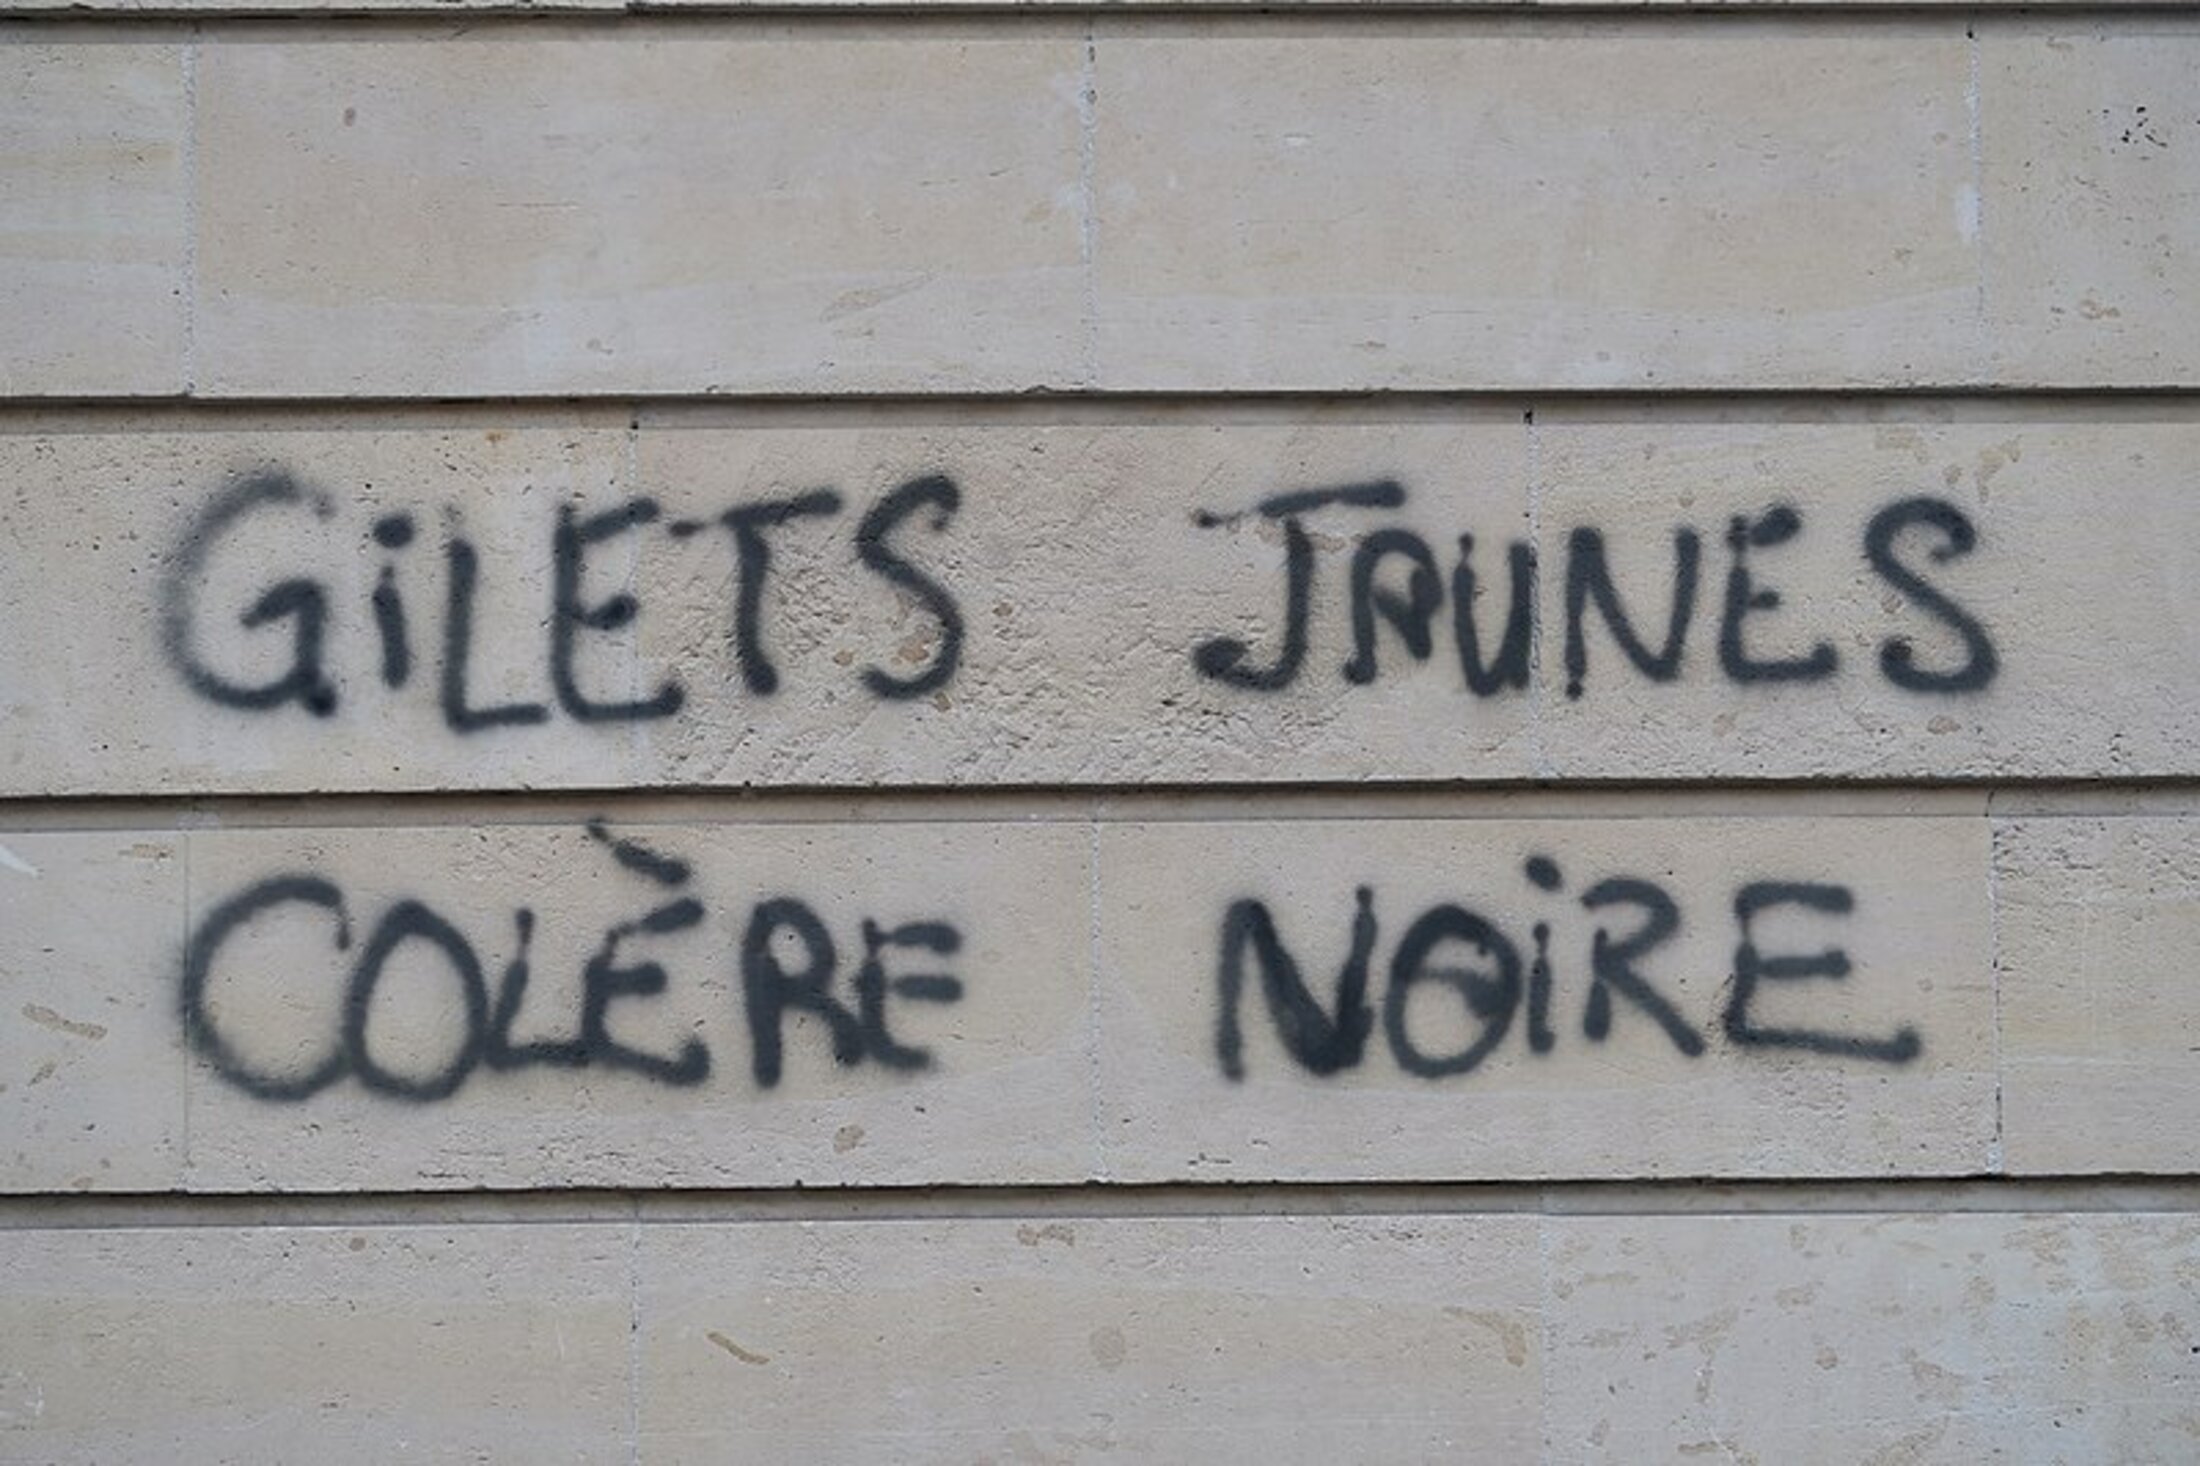 GiLETS JAUNES
COLÈRE NOiRE